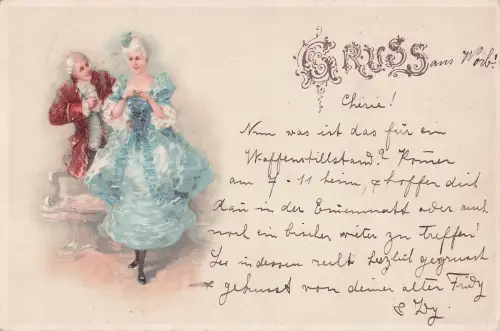 GRUSS aus Worb!
Chérie!
Nun was ist das für ein
Waffenstillstand? Komme
am 7-11 heim, & hoffe dich
dann in der oder auch
noch ein bischen weiter zu Treffen!
Sei indessen recht herzlich gegrüsst
& geküsst von deiner alten Fridy
&